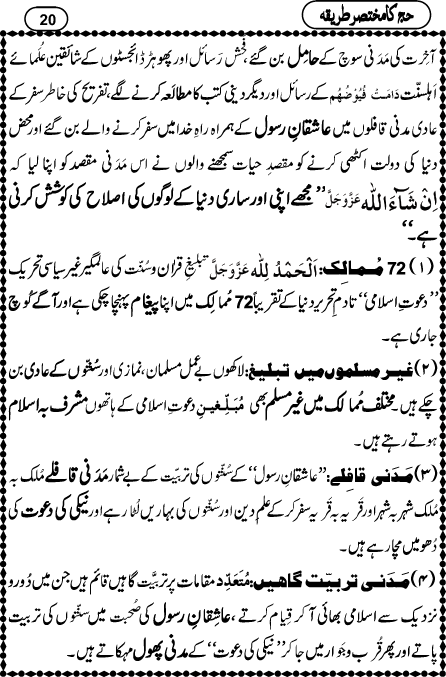 حج کا مختصر طریقہ
20
آخرت کی مَدَنی سوچ کے حامِل بن گئے، فُحش رَسائل اور پھوہڑ ڈائجسٹوں کے شائقین عُلَمائے
اہلسنّت دَامَتْ فُیُوْضُہُم کے رسائل اور دیگر دینی کتب کا مطالَعہ کرنے لگے، تفریح کی خاطر سفر کے
عادی مدنی قافلوں میں عاشقانِ رسول کے ہمراہ راہِ خدا میں سفر کرنے والے بن گئے اور محض
دنیا کی دولت اکٹھی کرنے کو مقصدِ حیات سمجھنے والوں نے اس مَدَنی مقصد کو اپنا لیا کہ
اِنْ شَآءَ اللّٰہ عَزَّوَجَلَّ ’’مجھے اپنی اور ساری دنیا کے لوگوں کی اصلاح کی کوشش کرنی
ہے۔‘‘
(۱) 72 مُمالِک: اَلْحَمْدُ لِلّٰہ عَزَّوَجَلَّ تبلیغِ قرآن و سنّت کی عالمگیر غیر سیاسی تحریک
’’دعوتِ اسلامی‘‘ تا دمِ تحریر دنیا کے تقریباً 72 مُمالِک میں اپنا پیغام پہنچا چکی ہے اور آگے کُوچ
جاری ہے۔
(۲) غیر مسلموں میں تبلیغ: لاکھوں بے عمل مسلمان، نمازی اور سُنّتوں کے عادی بن
چکے ہیں۔ مختلف مُمالِک میں غیر مسلم بھی مُبَلِّغینِ دعوتِ اسلامی کے ہاتھوں مشرف بہ اسلام
ہوتے رہتے ہیں۔
(۳) مَدَنی قافِلے: ’’عاشقانِ رسول‘‘ کے سُنّتوں کی تربیّت کے بے شمار مَدَنی قافلے مُلک بہ
مُلک شہر بہ شہر اور قَریہ بہ قَریہ سفر کر کے علمِ دین اور سُنّتوں کی بہاریں لُٹا رہے اور نیکی کی دعوت کی
دُھومیں مچا رہے ہیں۔
(۴) مَدَنی تربیّت گاہیں: مُتَعَدِّد مقامات پر تربیّت گاہیں قائم ہیں جن میں دُور و
نزدیک سے اسلامی بھائی آ کر قیام کرتے، عاشقانِ رسول کی صُحبت میں سنّتوں کی تربیت
پاتے اور پھر قُرب و جوار میں جا کر ’’نیکی کی دعوت‘‘ کے مدنی پھول مہکاتے ہیں۔